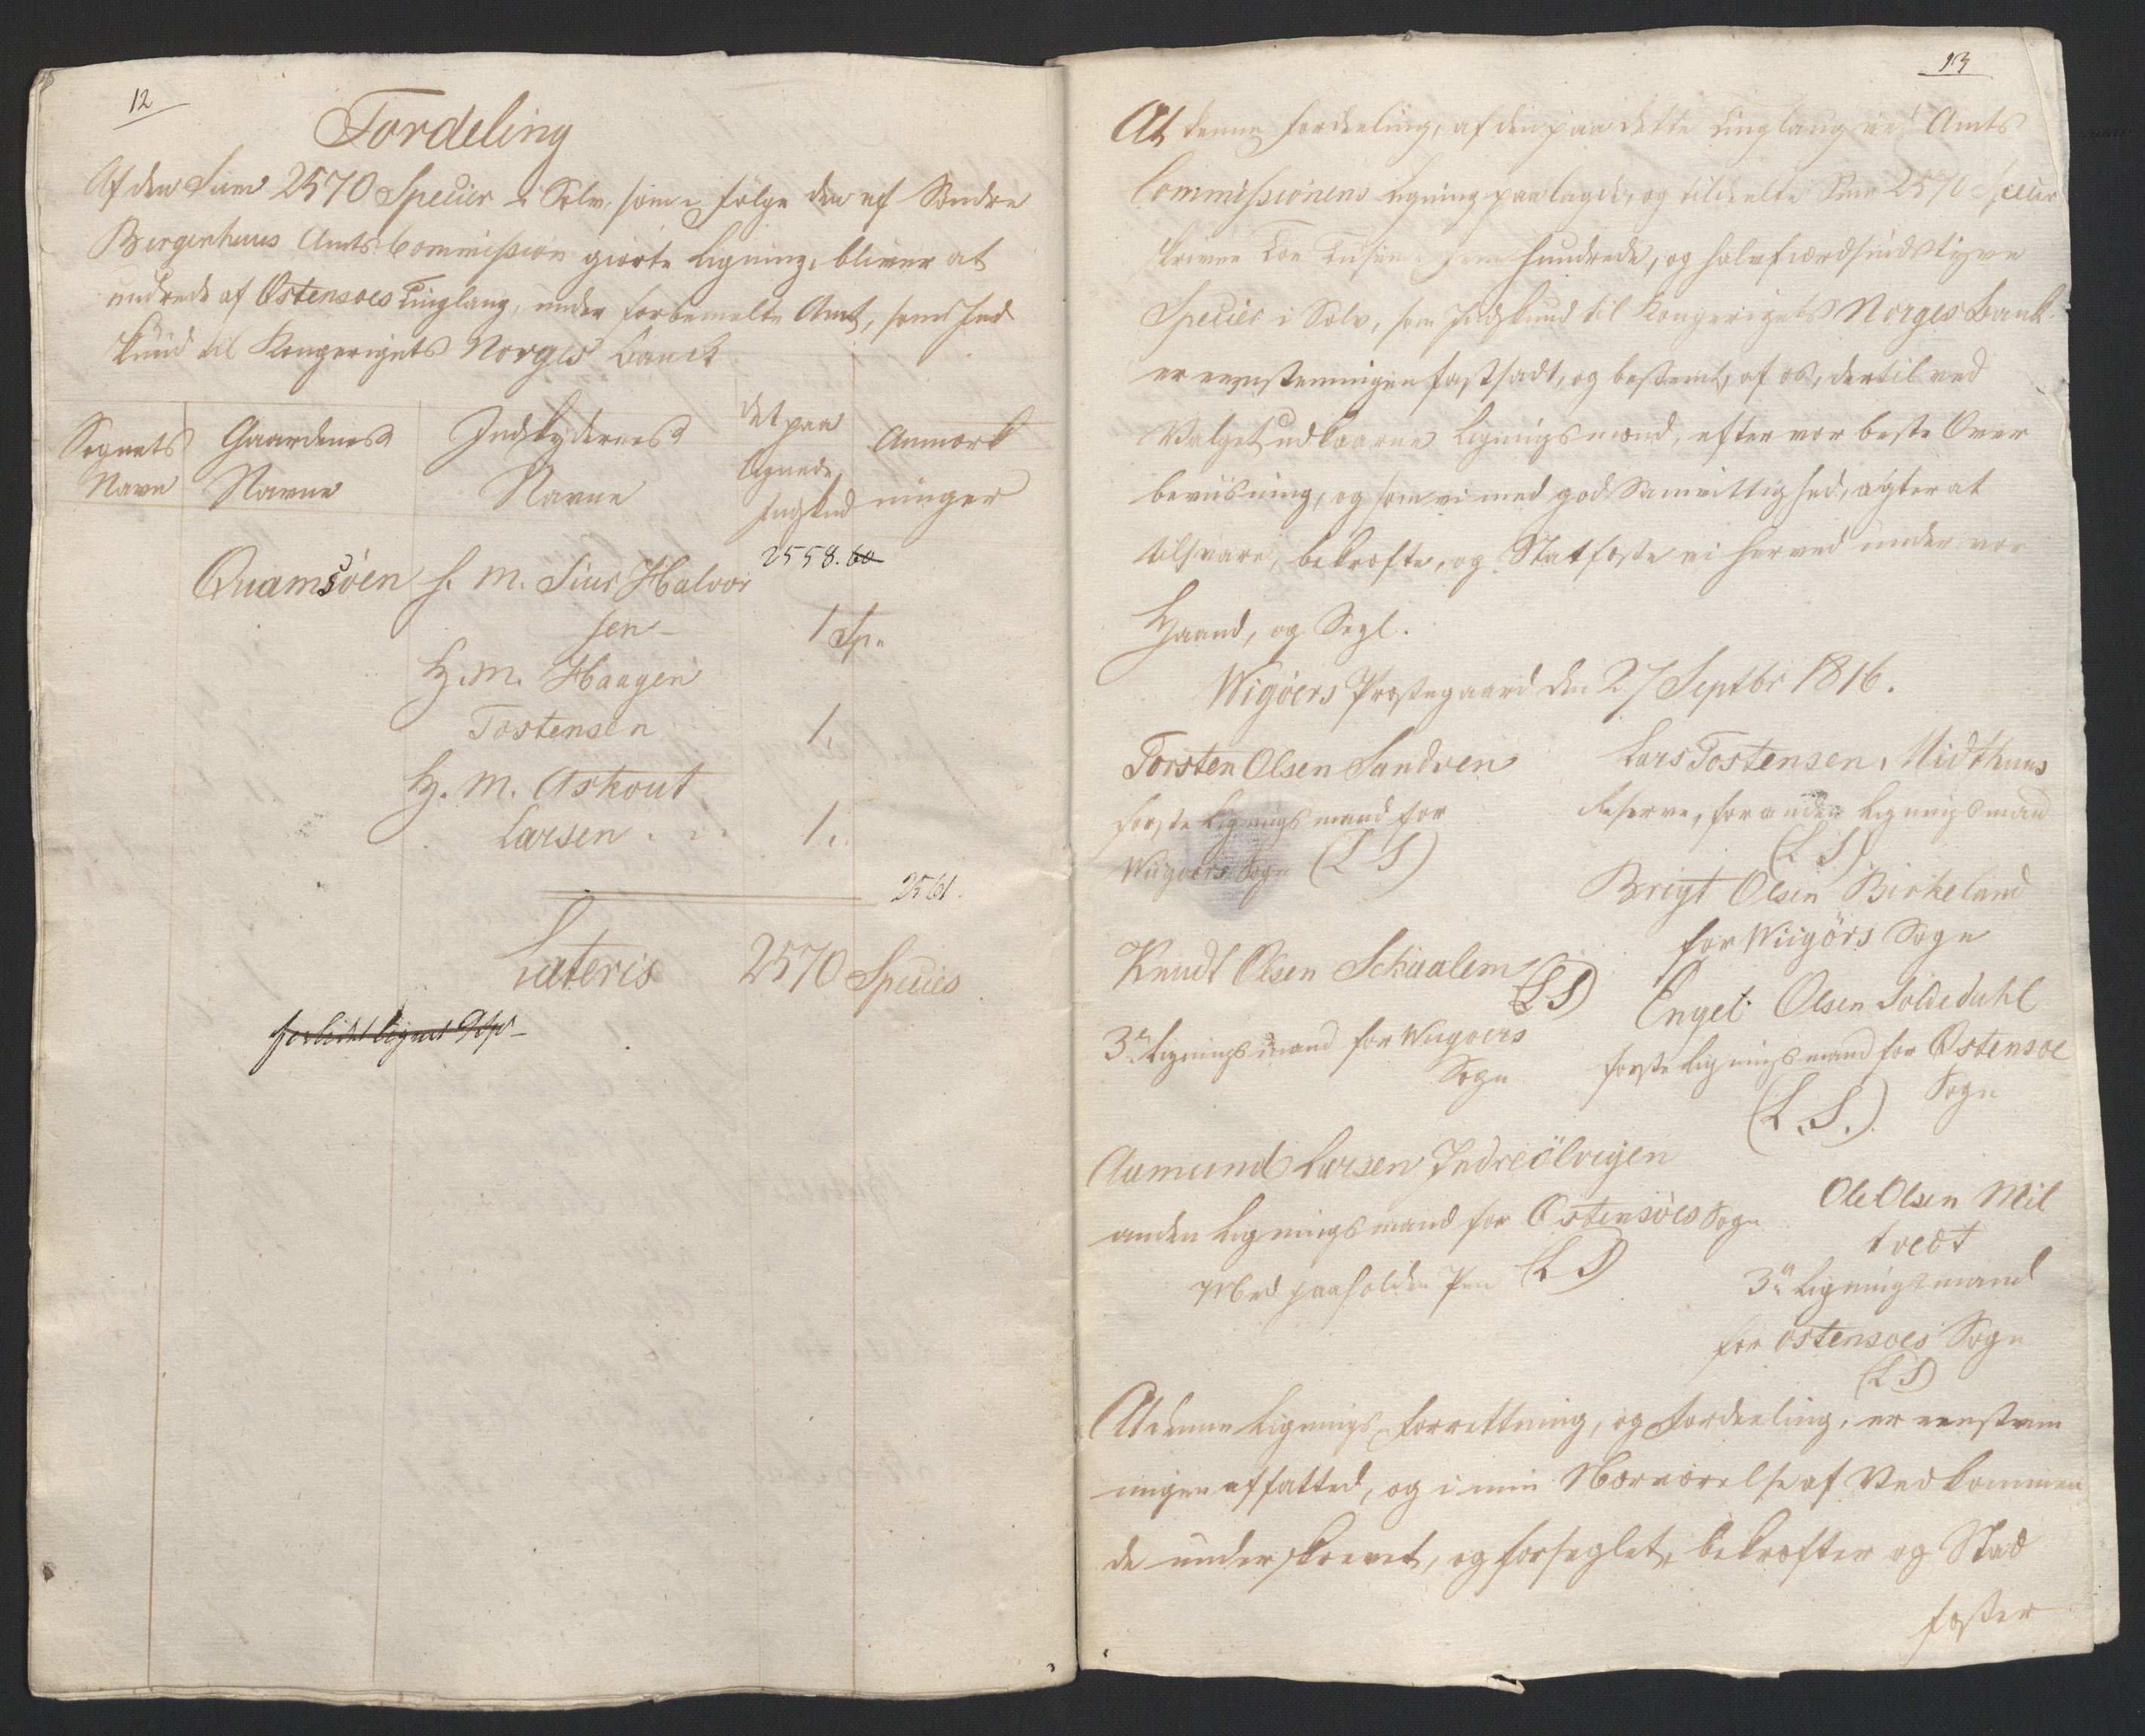 12
Fordeling
Af den Sum 2570 Specier i Sølv, som i følge den af Søndre
Bergenhuus Amts Commission giorte Ligning, bliver at
udrede af Østensøes Tinglaug, under forbemelte Amt, som Ind
skud til Kongerigets Norges Banck
Sognets
Navn
Gaardenes
Navne
Indskydernes
Navne
det paa
lignede
Indskud
Anmærk
ninger
2558. 60
Quamsöen H. M. Siur Halvor
sen - 1 Sp.
H. M. Haagen
Tostensen 1.
H. M. Askout
Larsen . . . 1.
2561.
Lateris 2570 Species
13
At denne Fordeeling, af den paa dette Tinglaug ved Amts
Commissionens Ligning paalagde, og tildeelte Sum 2570 Specier
skriver Toe Tusinde fem hundrede, og halvfierdsindstyve
Specier i Sølv, som Indskud til Kongerigets Norges Bank
er eenstemmigen fastsadt, og bestemt, af os, dertil ved
Valget udkaarne Ligningsmænd, efter vor beste Over
beviisning, og som vi med god Samvittighed, agter at
tilsvare, bekræfte, og Statfæste vi herved under vor
Haand, og Segl.
Wigöers Præstegaard den 27 Septbr 1816.
Torsten Olsen Sandven
første Ligningsmand for
Wiigøers Sogn (L S)
Lars Tostensen Midthuus
Reserve, for anden Ligningsmand
(L S)
Brigt Olsen Birkeland
for Wiigörs Sogn
Knudt Olsen Schaalem
(L S)
3de Ligningsmand for Wiigøers
Sogn
Engel Olsen Soldedahl
første Ligningsmand for Østensøe
Sogn
(L. S.)
Aamund Larsen Indreölvigen
anden Ligningsmand for Östensöes Sogn
Med paaholden Pen (L S)
Ole Olsen Mil
tvedt
3de Ligningsmand
for Østensøes Sogn
(L S)
At denne Lignings Forrettning, og Fordeeling, er eenstem
migen affatted, og i min Nærværelse af Vedkommen
de underskrevet, og forseglet, bekræfter og Stad
fæster